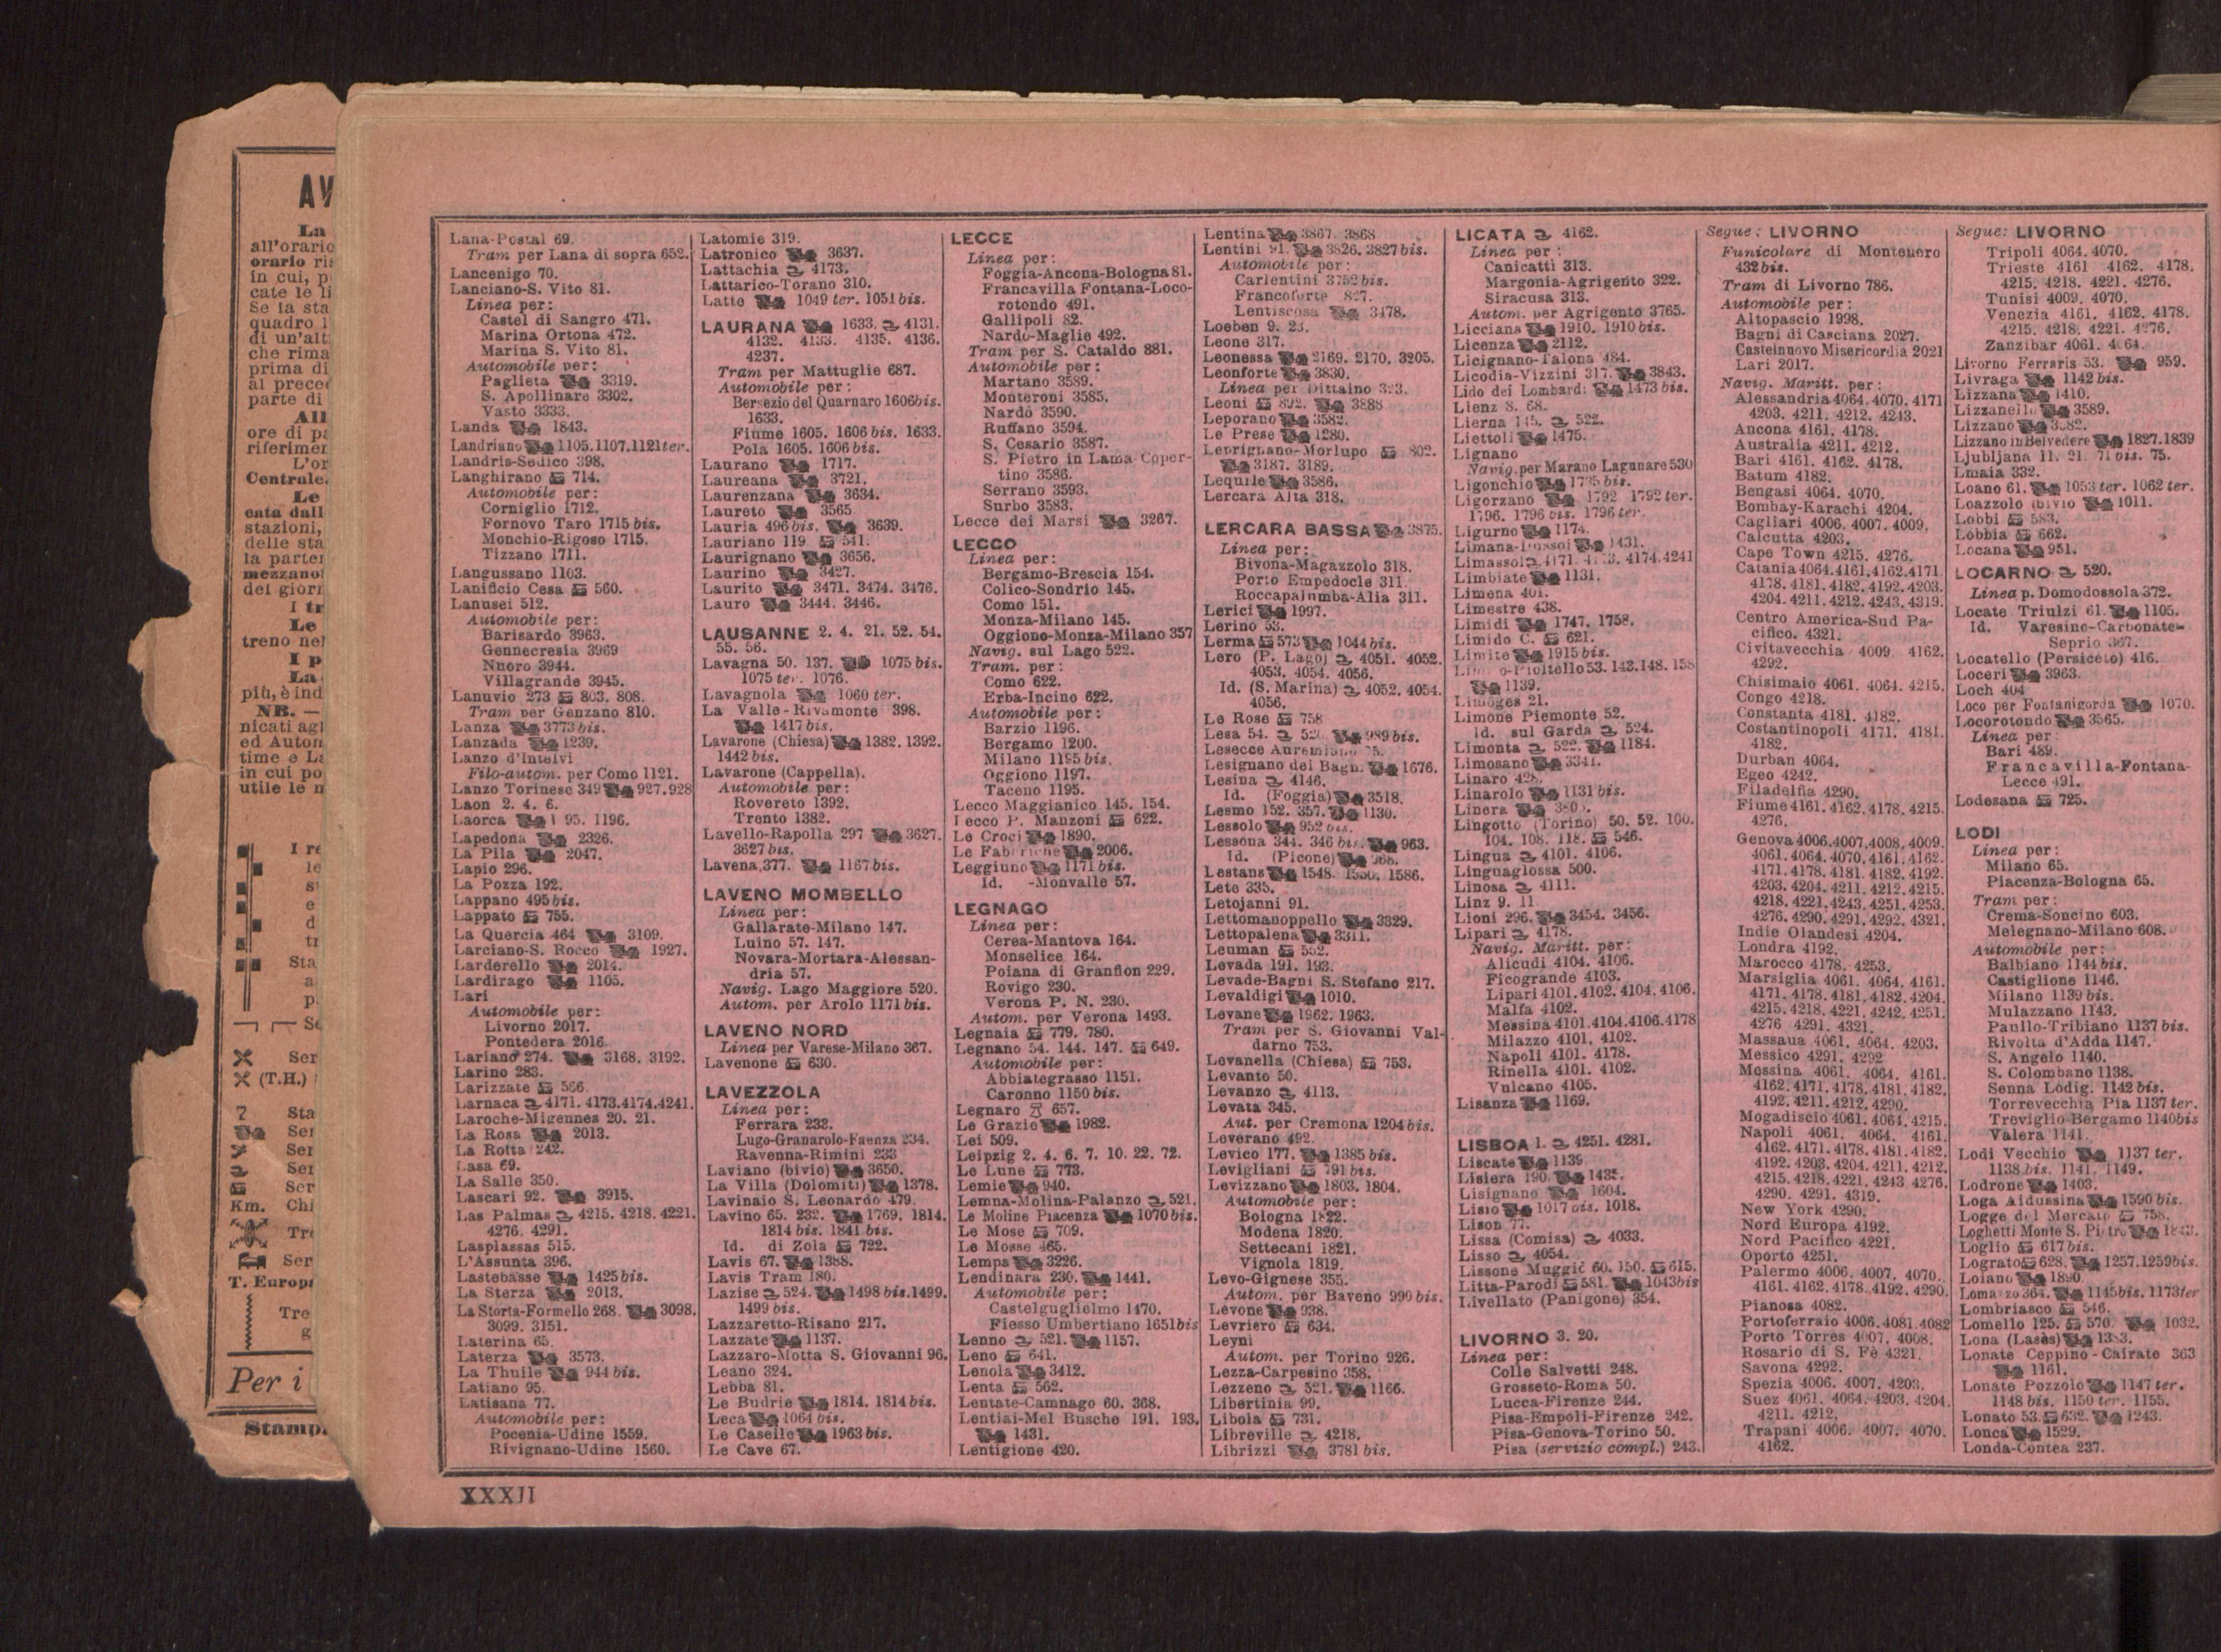 AV
La
all'orario
orario ris
in cui, p
cate le li
Se la sta
quadro 1
di un'alt
che rima
prima di
al preced
parte di
All
ore di pa
riferimer
L'or
Centrale.
Le
cata dall
stazioni,
delle sta
la parter
mezzanot
dei giorn
I tr
Le
treno nel
I p
La
più, è ind
NB. —
nicati agl
ed Auton
time e La
in cui po
utile le n
I re
le
s
e
d
tr
Sta
a
p
Se
Ser
(T.H.)
Sta
Ser
Ser
Ser
Ser
Km. Chi
Tre
Ser
T. Europ
Tre
g
Per i
Stamp
Lana-Postal 69.
Tram per Lana di sopra 652.
Lancenigo 70.
Lanciano-S. Vito 81.
Linea per:
Castel di Sangro 471.
Marina Ortona 472.
Marina S. Vito 81.
Automobile per:
Paglieta 3319.
S. Apollinare 3302.
Vasto 3333.
Landa 1843.
Landriano 1105.1107.1121ter.
Landris-Sedico 398.
Langhirano 714.
Automobile per:
Corniglio 1712.
Fornovo Taro 1715 bis.
Monchio-Rigoso 1715.
Tizzano 1711.
Langussano 1103.
Lanificio Cesa 560.
Lanusei 512.
Automobile per:
Barisardo 3963.
Gennecresia 3969
Nuoro 3944.
Villagrande 3945.
Lanuvio 273 803. 808.
Tram per Genzano 810.
Lanza 3773 bis.
Lanzada 1239.
Lanzo d'Intelvi
Filo-autom. per Como 1121.
Lanzo Torinese 349 927.928
Laon 2. 4. 6.
Laorca 95. 1196.
Lapedona 2326.
La Pila 2047.
Lapio 296.
La Pozza 192.
Lappano 495 bis.
Lappato 755.
La Quercia 464 3109.
Larciano-S. Rocco 1927.
Larderello 2014.
Lardirago 1105.
Lari
Automobile per:
Livorno 2017.
Pontedera 2016.
Lariano 274. 3168. 3192.
Larino 283.
Larizzate 566.
Larnaca 4171. 4173.4174.4241.
Laroche-Migennes 20. 21.
La Rosa 2013.
La Rotta 242.
Lasa 69.
La Salle 350.
Lascari 92. 3915.
Las Palmas 4215. 4218. 4221.
4276. 4291.
Lasplassas 515.
L'Assunta 396.
Lastebasse 1425 bis.
La Sterza 2013.
La Storta-Formello 268. 3098.
3099. 3151.
Laterina 65.
Laterza 3573.
La Thuile 944 bis.
Latiano 95.
Latisana 77.
Automobile per:
Pocenia-Udine 1559.
Rivignano-Udine 1560.
Latomie 319.
Latronico 3637.
Lattachia 4173.
Lattarico-Torano 310.
Latte 1049 ter. 1051 bis.
LAURANA 1633. 4131.
4132. 4133. 4135. 4136.
4237.
Tram per Mattuglie 687.
Automobile per:
Bersezio del Quarnaro 1606bis.
1633.
Fiume 1605. 1606 bis. 1633.
Pola 1605. 1606 bis.
Laurano 1717.
Laureana 3721.
Laurenzana 3634.
Laureto 3565
Lauria 496 bis. 3639.
Lauriano 119. 541.
Laurignano 3656.
Laurino 3427.
Laurito 3471. 3474. 3476.
Lauro 3444. 3446.
LAUSANNE 2. 4. 21. 52. 54.
55. 56.
Lavagna 50. 137. 1075 bis.
1075 ter. 1076.
Lavagnola 1060 ter.
La Valle-Rivamonte 398.
1417 bis.
Lavarone (Chiesa) 1382. 1392.
1442 bis.
Lavarone (Cappella).
Automobile per:
Rovereto 1392.
Trento 1382.
Lavello-Rapolla 297 3627.
3627 bis.
Lavena 377. 1167 bis.
LAVENO MOMBELLO
Linea per:
Gallarate-Milano 147.
Luino 57. 147.
Novara-Mortara-Alessan-
dria 57.
Navig. Lago Maggiore 520.
Autom. per Arolo 1171 bis.
LAVENO NORD
Linea per Varese-Milano 367.
Lavenone 630.
LAVEZZOLA
Linea per:
Ferrara 233.
Lugo-Granarolo-Faenza 234.
Ravenna-Rimini 233
Laviano (bivio) 3650.
La Villa (Dolomiti) 1378.
Lavinaio S. Leonardo 479.
Lavino 65. 232. 1769. 1814.
1814 bis. 1841 bis.
Id. di Zola 722.
Lavis 67. 1388.
Lavis Tram 180.
Lazise 524. 1498 bis.1499.
1499 bis.
Lazzaretto-Risano 217.
Lazzate 1137.
Lazzaro-Motta S. Giovanni 96.
Leano 324.
Lebba 81.
Le Budrie 1814. 1814 bis.
Leca 1064 bis.
Le Caselle 1963 bis.
Le Cave 67.
LECCE
Linea per:
Foggia-Ancona-Bologna 81.
Francavilla Fontana-Loco-
rotondo 491.
Gallipoli 82.
Nardò-Maglie 492.
Tram per S. Cataldo 881.
Automobile per:
Martano 3589.
Monteroni 3585.
Nardò 3590.
Ruffano 3594.
S. Cesario 3587.
S. Pietro in Lama-Coper-
tino 3586.
Serrano 3593.
Surbo 3583.
Lecce dei Marsi 3267.
LECCO
Linea per:
Bergamo-Brescia 154.
Colico-Sondrio 145.
Como 151.
Monza-Milano 145.
Oggiono-Monza-Milano 357
Navig. sul Lago 522.
Tram. per:
Como 622.
Erba-Incino 622.
Automobile per:
Barzio 1196.
Bergamo 1200.
Milano 1195 bis.
Oggiono 1197.
Taceno 1195.
Lecco Maggianico 145. 154.
Lecco P. Manzoni 622.
Le Croci 1890.
Le Fabbriche 2006.
Leggiuno 1171 bis.
Id. -Monvalle 57.
LEGNAGO
Linea per:
Cerea-Mantova 164.
Monselice 164.
Poiana di Granfion 229.
Rovigo 230.
Verona P. N. 230.
Autom. per Verona 1493.
Legnaia 779. 780.
Legnano 54. 144. 147. 649.
Automobile per:
Abbiategrasso 1151.
Caronno 1150 bis.
Legnaro 657.
Le Grazie 1982.
Lei 509.
Leipzig 2. 4. 6. 7. 10. 22. 72.
Le Lune 773.
Lemie 940.
Lemna-Molina-Palanzo 521.
Le Moline Piacenza 1070 bis.
Le Mose 709.
Le Mosse 465.
Lempa 3226.
Lendinara 230. 1441.
Automobile per:
Castelguglielmo 1470.
Fiesso Umbertiano 1651bis
Lenno 521. 1157.
Leno 641.
Lenola 3412.
Lenta 562.
Lentate-Camnago 60. 368.
Lentiai-Mel Busche 191. 193.
1431.
Lentigione 420.
Lentina 3867. 3868
Lentini 91. 3826. 3827 bis.
Automobile per:
Carlentini 3752 bis.
Francoforte
Lentiscosa 3478.
Loeben 9. 23.
Leone 317.
Leonessa 2169. 2170. 3205.
Leonforte 3830.
Linea per Dittaino 323.
Leoni 892. 3888
Leporano 3582.
Le Prese 1280.
Leprignano-Morlupo 802.
3187. 3189.
Lequile 3586.
Lercara Alta 318.
LERCARA BASSA 3875.
Linea per:
Bivona-Magazzolo 318.
Porto Empedocle 311.
Roccapalumba-Alia 311.
Lerici 1997.
Lerino 53.
Lerma 573 1044 bis.
Lero (P. Lago) 4051. 4052.
4053. 4054. 4056.
Id. (S. Marina) 4052. 4054.
4056.
Le Rose 758
Lesa 54. 520. 989 bis.
Lesecce Auremiano 75.
Lesignano dei Bagni 1676.
Lesina 4146.
Id. (Foggia) 3518.
Lesmo 152. 357. 1130.
Lessolo 952 bis.
Lessona 344. 346 bis. 963.
Id. (Picone) 968.
Lestans 1548. 1550. 1586.
Lete 335.
Letojanni 91.
Lettomanoppello 3329.
Lettopalena 3311.
Leuman 552.
Levada 191. 193.
Levade-Bagni S. Stefano 217.
Levaldigi 1010.
Levane 1962. 1963.
Tram per S. Giovanni Val-
darno 753.
Levanella (Chiesa) 753.
Levanto 50.
Levanzo 4113.
Levata 345.
Aut. per Cremona 1204 bis.
Leverano 492.
Levico 177. 1385 bis.
Levigliani 791 bis.
Levizzano 1803. 1804.
Automobile per:
Bologna 1822.
Modena 1820.
Settecani 1821.
Vignola 1819.
Levo-Gignese 355.
Autom. per Baveno 990 bis.
Levone 938.
Levriero 634.
Leynì
Autom. per Torino 926.
Lezza-Carpesino 358.
Lezzeno 521. 1166.
Libertinia 99.
Libola 731.
Libreville 4218.
Librizzi 3781 bis.
LICATA 4162.
Linea per:
Canicattì 313.
Margonia-Agrigento 322.
Siracusa 313.
Autom. per Agrigento 3765.
Licciana 1910. 1910 bis.
Licenza 2112.
Licignano-Talona 484.
Licodia-Vizzini 317. 3843.
Lido dei Lombardi 1473 bis.
Lienz S. 68.
Lierna 145. 522.
Liettoli 1475.
Lignano
Navig. per Marano Lagunare 530
Ligonchio 1735 bis.
Ligorzano 1792. 1792 ter.
1796. 1796 bis. 1796 ter.
Ligurno 1174.
Limana- 1431.
Limassol 4171. 4174.4241
Limbiate 1131.
Limena 401.
Limestre 438.
Limidi 1747. 1758.
Limido C. 621.
Limite 1915 bis.
Limito-Pioltello 53. 143.148. 158
1139.
Limoges 21.
Limone Piemonte 52.
Id. sul Garda 524.
Limonta 522. 1184.
Limosano 3341.
Linaro 428.
Linarolo 1131 bis.
Linera
Lingotto (Torino) 50. 52. 100.
104. 108. 118. 546.
Lingua 4101. 4106.
Linguaglossa 500.
Linosa 4111.
Linz 9. 11
Lioni 296. 3454. 3456.
Lipari 4178.
Navig. Maritt. per:
Alicudi 4104. 4106.
Ficogrande 4103.
Lipari 4101. 4102. 4104. 4106.
Malfa 4102.
Messina 4101.4104.4106.4178
Milazzo 4101. 4102.
Napoli 4101. 4178.
Rinella 4101. 4102.
Vulcano 4105.
Lisanza 1169.
LISBOA 1. 4251. 4281.
Liscate 1139.
Lisiera 190. 1435.
Lisignano 1604.
Lisio 1017 bis. 1018.
Lison 77.
Lissa (Comisa) 4033.
Lisso 4054.
Lissone Muggiò 60. 150. 615.
Litta-Parodi 581. 1043bis
Livellato (Panigone) 354.
LIVORNO 3. 20.
Linea per:
Colle Salvetti 248.
Grosseto-Roma 50.
Lucca-Firenze 244.
Pisa-Empoli-Firenze 242.
Pisa-Genova-Torino 50.
Pisa (servizio compl.) 243.
Segue: LIVORNO
Funicolare di Montenero
432 bis.
Tram di Livorno 786.
Automobile per:
Altopascio 1998.
Bagni di Casciana 2027.
Castelnuovo Misericordia 2021
Lari 2017.
Navig. Maritt. per:
Alessandria 4064. 4070. 4171
4203. 4211. 4212. 4243.
Ancona 4161. 4178.
Australia 4211. 4212.
Bari 4161. 4162. 4178.
Batum 4182.
Bengasi 4064. 4070.
Bombay-Karachi 4204.
Cagliari 4006. 4007. 4009.
Calcutta 4203.
Cape Town 4215. 4276.
Catania 4064.4161.4162.4171.
4178. 4181. 4182. 4192. 4203.
4204. 4211. 4212. 4243. 4319.
Centro America-Sud Pa-
cifico. 4321.
Civitavecchia 4009. 4162.
4292.
Chisimaio 4061. 4064. 4215.
Congo 4218.
Constanta 4181. 4182.
Costantinopoli 4171. 4181.
4182.
Durban 4064.
Egeo 4242.
Filadelfia 4290.
Fiume 4161. 4162. 4178. 4215.
4276.
Genova 4006.4007.4008. 4009.
4061. 4064. 4070. 4161. 4162.
4171. 4178. 4181. 4182. 4192.
4203. 4204. 4211. 4212. 4215.
4218. 4221. 4243. 4251. 4253.
4276. 4290. 4291. 4292. 4321.
Indie Olandesi 4204.
Londra 4192.
Marocco 4178. 4253.
Marsiglia 4061. 4064. 4161.
4171. 4178. 4181. 4182. 4204.
4215. 4218. 4221. 4242. 4251.
4276 4291. 4321.
Massaua 4061. 4064. 4203.
Messico 4291. 4292
Messina 4061. 4064. 4161.
4162. 4171. 4178. 4181. 4182.
4192. 4211. 4212. 4290.
Mogadiscio 4061. 4064. 4215.
Napoli 4061. 4064. 4161.
4162. 4171. 4178. 4181. 4182.
4192. 4203. 4204. 4211. 4212.
4215. 4218. 4221. 4243 4276.
4290. 4291. 4319.
New York 4290.
Nord Europa 4192.
Nord Pacifico 4221.
Oporto 4251.
Palermo 4006. 4007. 4070.
4161. 4162. 4178. 4192. 4290.
Pianosa 4082.
Portoferraio 4006. 4081. 4082
Porto Torres 4007. 4008.
Rosario di S. Fè 4321.
Savona 4292.
Spezia 4006. 4007. 4203.
Suez 4061. 4064. 4203. 4204.
4211. 4212.
Trapani 4006. 4007. 4070.
4162.
Segue: LIVORNO
Tripoli 4064. 4070.
Trieste 4161 4162. 4178.
4215. 4218. 4221. 4276.
Tunisi 4009. 4070.
Venezia 4161. 4162. 4178.
4215. 4218. 4221. 4276.
Zanzibar 4061. 4064.
Livorno Ferraris 53. 959.
Livraga 1142 bis.
Lizzana 1410.
Lizzanello 3589.
Lizzano 3582.
Lizzano in Belvedere 1827.1839
Ljubljana 11. 21. 71 bis. 75.
Lmaia 332.
Loano 61. 1053 ter. 1062 ter.
Loazzolo (bivio 1011.
Lobbi 583.
Lobbia 662.
Locana 951.
LOCARNO 520.
Linea p. Domodossola 372.
Locate Triulzi 61. 1105.
Id. Varesino-Carbonate-
Seprio 367.
Locatello (Persiceto) 416.
Loceri 3963.
Loch 404
Loco per Fontanigorda 1070.
Locorotondo 3565.
Linea per:
Bari 489.
Francavilla-Fontana-
Lecce 491.
Lodesana 725.
LODI
Linea per:
Milano 65.
Piacenza-Bologna 65.
Tram per:
Crema-Soncino 603.
Melegnano-Milano 608.
Automobile per:
Balbiano 1144 bis.
Castiglione 1146.
Milano 1139 bis.
Mulazzano 1143.
Paullo-Tribiano 1137 bis.
Rivolta d'Adda 1147.
S. Angelo 1140.
S. Colombano 1138.
Senna Lodig. 1142 bis.
Torrevecchia Pia 1137 ter.
Treviglio-Bergamo 1140bis
Valera 1141.
Lodi Vecchio 1137 ter.
1138 bis. 1141. 1149.
Lodrone 1403.
Loga Aidussina 1590 bis.
Logge del Mercato 758.
Loghetti Monte S. Pietro 1843.
Loglio 617 bis.
Lograto 628. 1257.1259bis.
Loiano 1890.
Lomazzo 364. 1145bis. 1173ter
Lombriasco 546.
Lomello 125. 570. 1032.
Lona (Lasès) 1383.
Lonate Ceppino-Cairate 363
1161.
Lonate Pozzolo 1147 ter.
1148 bis. 1150 ter. 1155.
Lonato 53. 632. 1243.
Lonca 1529.
Londa-Contea 237.
XXXII